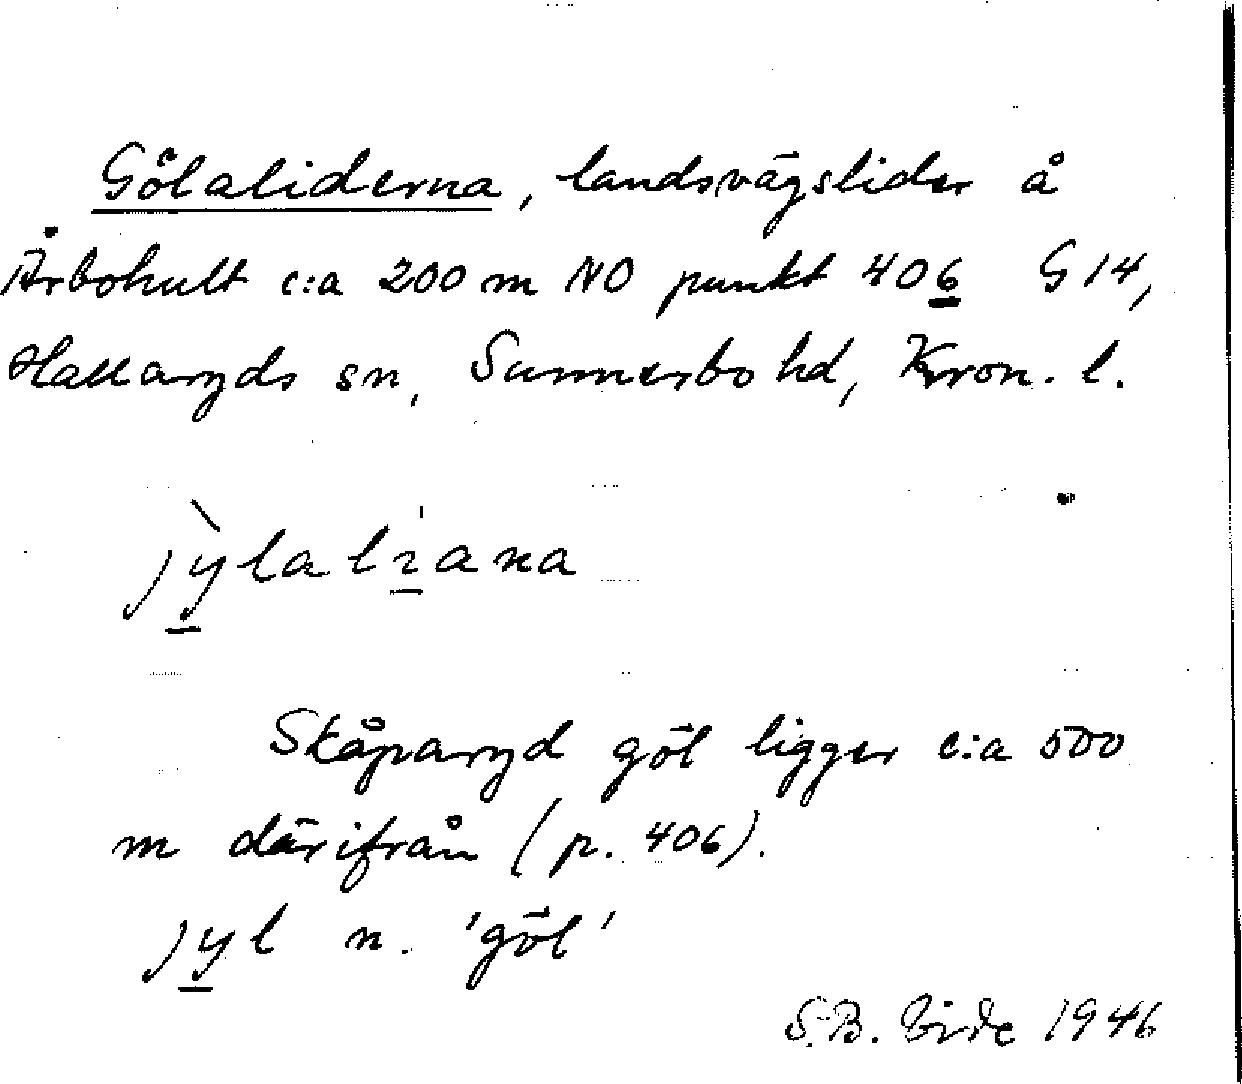 Gölaliderna, landsvägslider å
Årbohult c:a 200 m NO punkt 406 G 14,
Hallaryds sn, Sunnerbo hd, Kron. l.
jỳlalɿana
Skåparyd göl ligger c:a 500
m därifrån (p. 406).
jyl n. 'göl'
S.B. Vide 1946